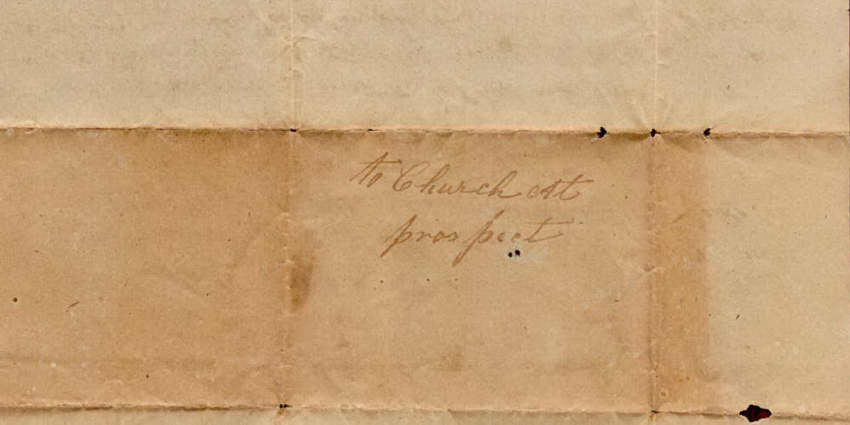 to Church At
prospect